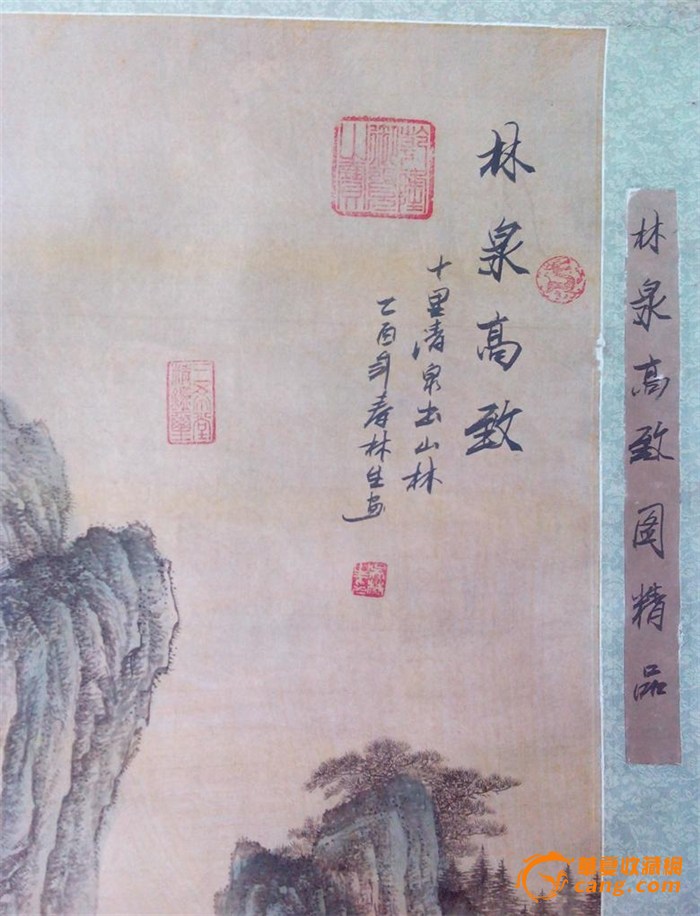 林泉高致图精品
林泉高致
十里清泉出山林
乙酉年春林生画
华夏收藏网
cang.com